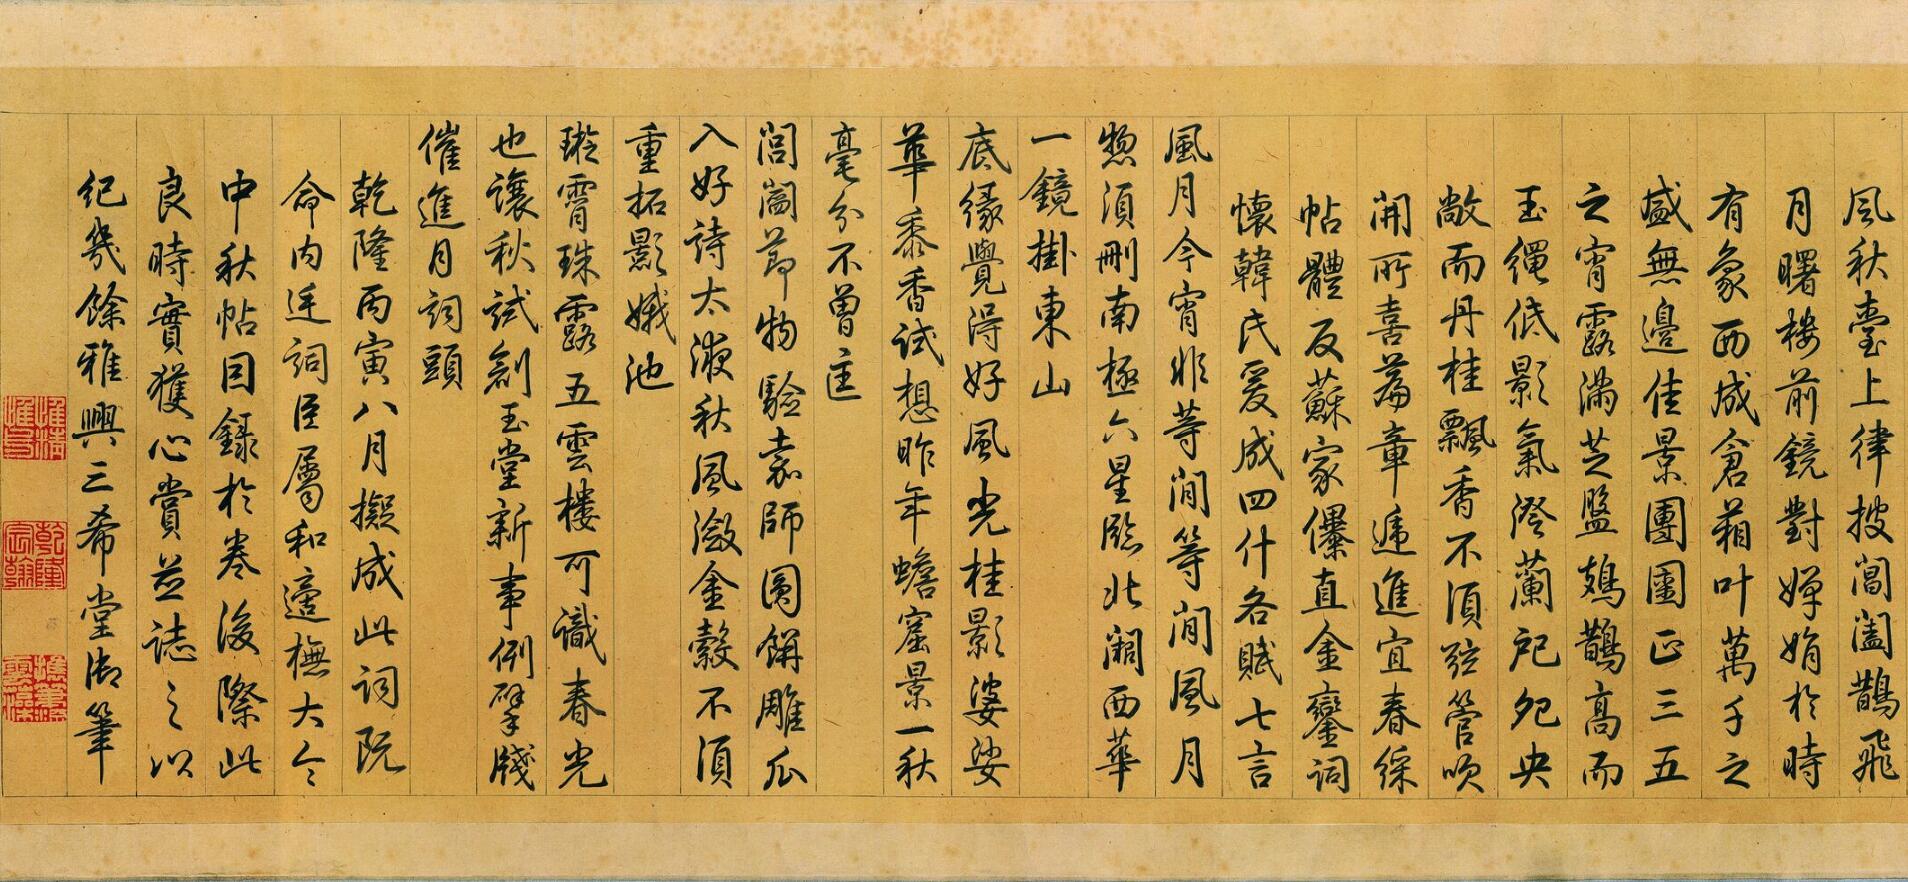 風秋臺上律披閶闔鵲飛
月曙樓前鏡對嬋娟於時
有象西成倉葙叶萬千之
盛無邊佳景團圞正三五
之宵露滿芝盤鳷鵲高而
玉繩低影氣澄蘭戺夗央
敞而丹桂飄香不須弦管吹
開所喜篇章遞進宜春綵
帖體反蘇家儤直金鑾詞
懷韓氏爰成四什各賦七言
風月今宵非等閒等閒風月
惣須刪南極六星臨北澗西華
一鏡掛東山
底緣覺得好風光桂影婆娑
華黍香試想昨年蟾窟景一秋
毫分不曾
閶闔節物驗京師圓餅雕瓜
入好詩太液秋風瀲金縠不須
重拓影娥池
璇霄珠露五雲樓可識春光
也讓秋試創玉堂新事例擘牋
催進月詞頭
乾隆丙寅八月擬成此詞既
命內廷詞臣屬和適橅大令
中秋帖因錄於卷後際此
良時實獲心賞並誌之以
紀幾餘雅興三希堂御筆
乾隆
宸翰